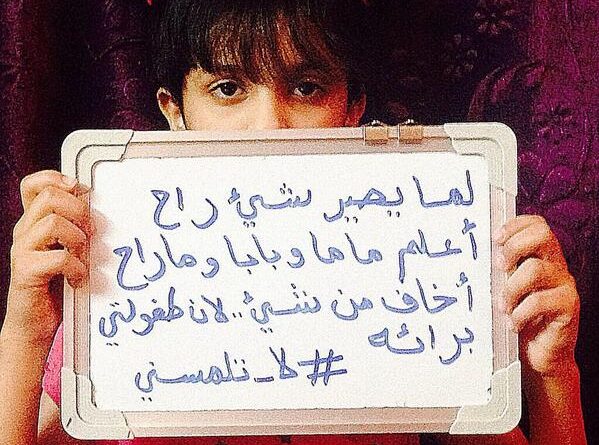 لما يصير شيئ راح
أعلم ماما وبابا وماراح
أخاف من شيئ .. لان طفولتي
برائه
#لا_تلمسني